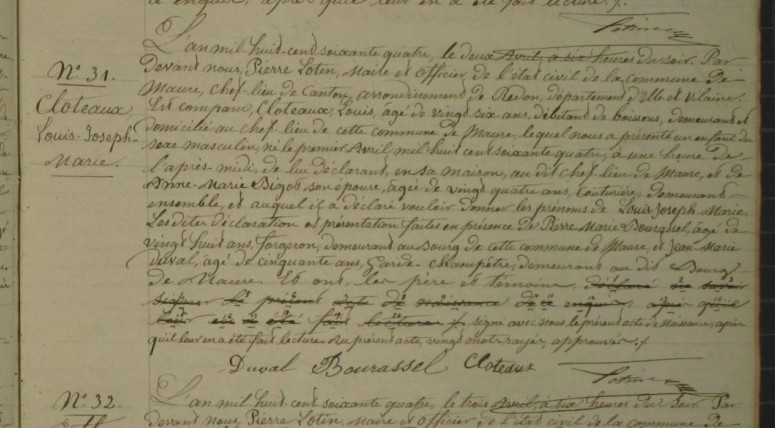 N° 31.
Cloteaux,
Louis-Joseph-
Marie.
L'an mil huit-cent soixante quatre, le deux Avril, à six heures du soir. Par
devant nous, Pierre Lotin, Maire et Officier, de l'état civil de la commune de
Maure, chef-lieu de Canton, arrondissement de Redon, département d'Ille et Vilaine.
Est comparu, Cloteaux, Louis, âgé de vingt six ans, débitant de boissons, demeurant et
domicilié au chef-lieu de cette commune de Maure, lequel nous a présenté un enfant du
sexe masculin, né le premier Avril, mil huit cent soixante quatre, à une heure de
l'après-midi, de lui déclarant, en sa maison, au dit chef-lieu de Maure, et de
Anne-Marie son épouse, âgée de vingt quatre ans, couturière, demeurant
ensemble, et auquel il a déclaré vouloir donner les prénoms de Louis-Joseph-Marie.
Les dites déclaration et présentation faites en présence de Pierre Marie Bourassel, âgé de
vingt huit ans, forgeron, demeurant au Bourg de cette commune de Maure, et Jean Marie
Duval, âgé de cinquante ans, Garde-champêtre, demeurant au dit Bourg
de Maure. Et ont, les père et témoins, déclaré
signé avec nous le présent acte de Naissance, après
qu'il leur en a été fait lecture du présent acte, vingt mots rayés, approuvés ./.
Duval Bourassel Cloteaux
N° 32.
L'an mil huit-cent soixante quatre, le trois Avril, à six heures du soir. Par
devant nous, Pierre Lotin, Maire et Officier de l'état civil de la commune de